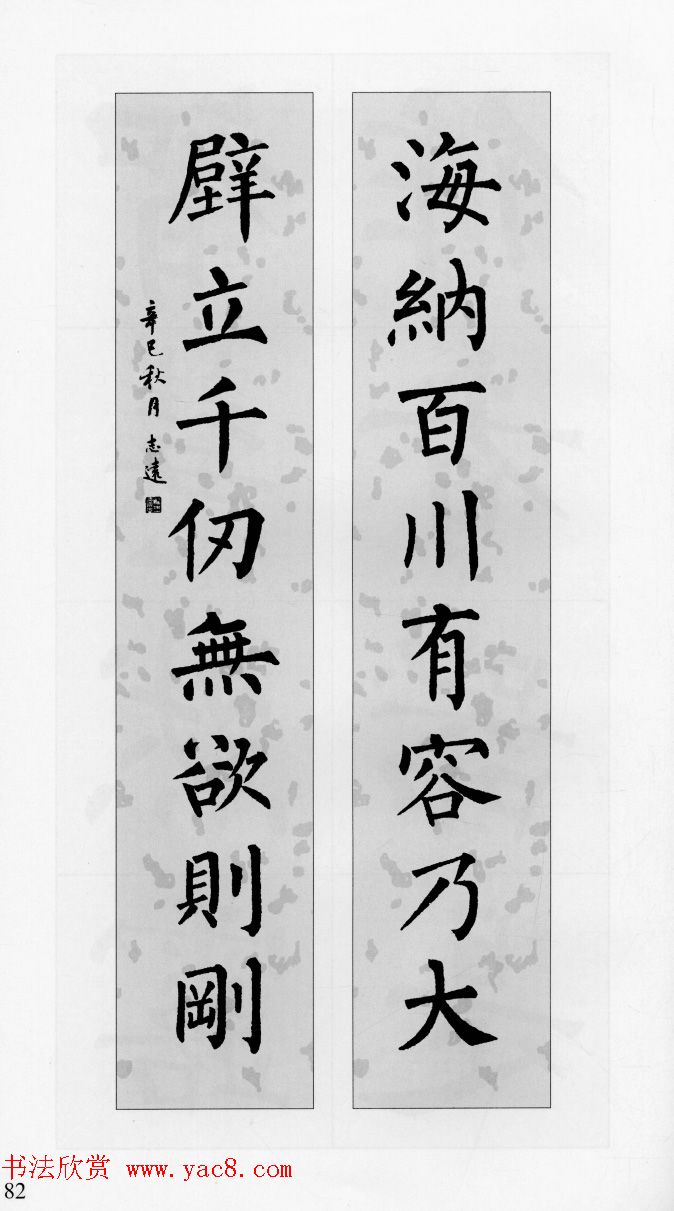 海納百川有容乃大
壁立千仞無欲則剛
辛巳秋月 志遠
书法欣赏 www.yac8.com
82